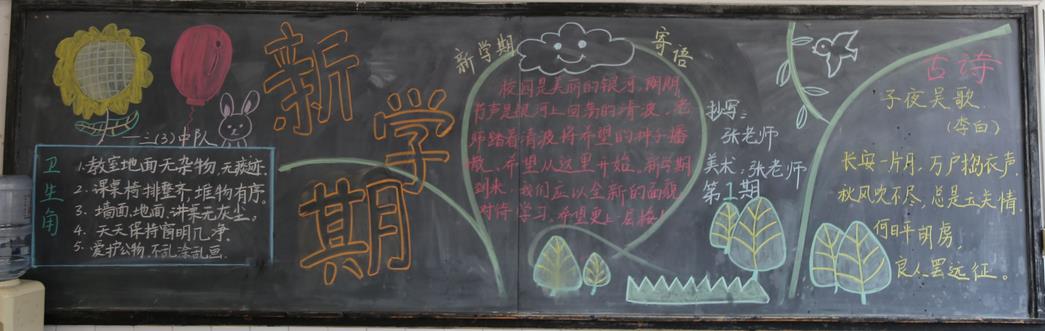 一三(3)中队
卫生角
1.教室地面无杂物,无痰迹.
2.课桌椅排整齐,堆物有序.
3.墙面,地面,讲桌无灰尘。
4.天天保持窗明几净.
5.爱护公物.不乱涂乱画.
新学期
新学期 寄语
校园是美丽的银河,朗朗
书声是银河上回荡的清波,老
师踏着清波将希望的种子播
散、希望从这里开始。新学期
到来,我们应以全新的面貌
对待学习,希望更上一层楼!
抄写:
张老师
美术:张老师
第1期
古诗
子夜吴歌
(李白)
长安一片月,万户捣衣声
秋风吹不尽,总是玉关情.
何日平胡虏,
良人罢远征。